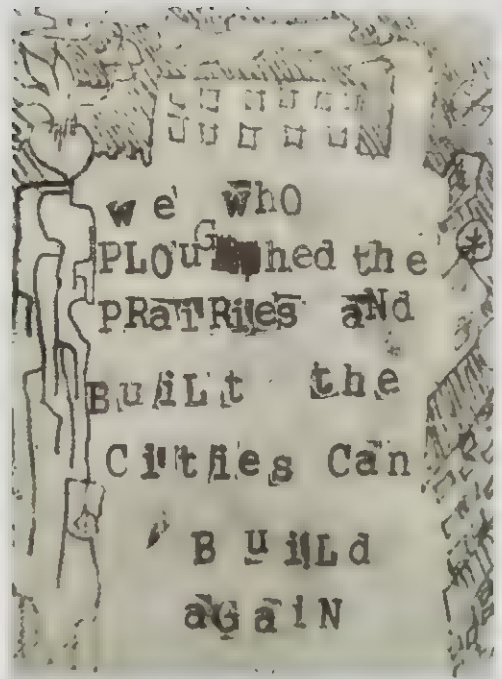 we who
PLOuGhed the
PRaiRies aNd
BuiLt the
Cities Can
BuiLd
aGaiN